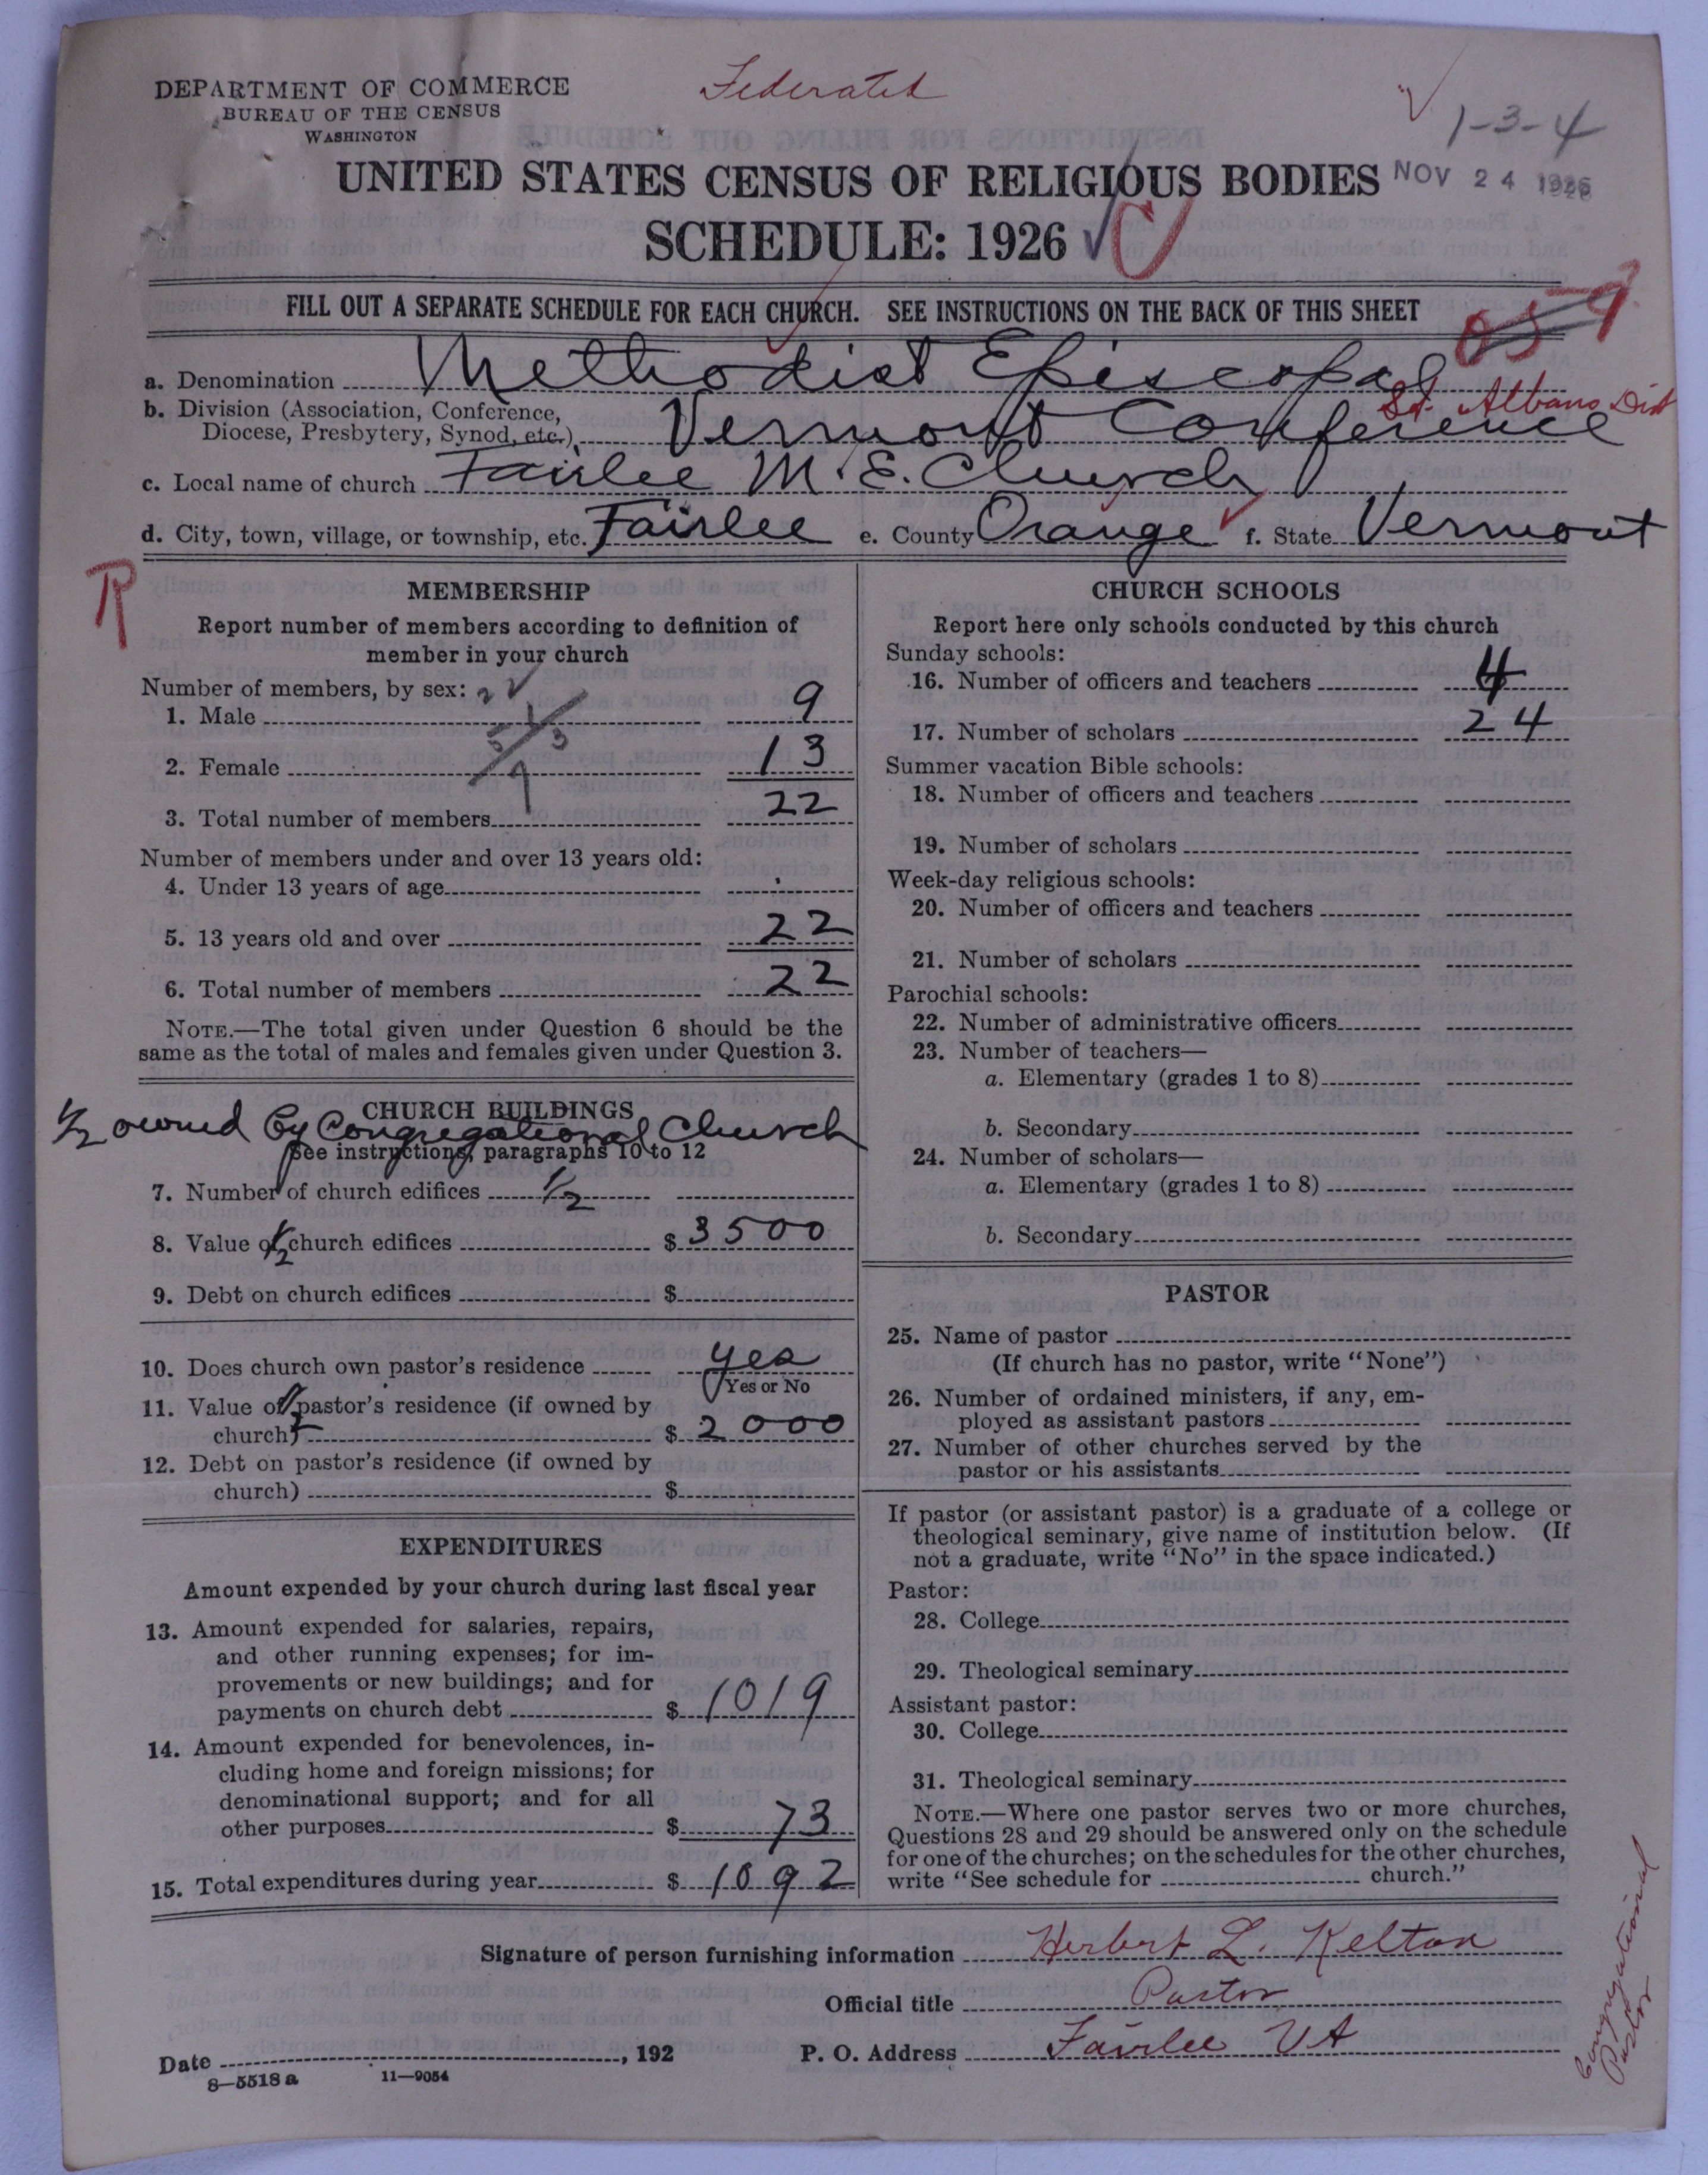 DEPARTMENT OF COMMERCE
BUREAU OF THE CENSUS
WASHINGTON
Federated
1-3-4
UNITED STATES CENSUS OF RELIGIOUS BODIES
NOV 24 1926
SCHEDULE: 1926
FILL OUT A SEPARATE SCHEDULE FOR EACH CHURCH. SEE INSTRUCTIONS ON THE BACK OF THIS SHEET
a. Denomination Methodist Episcopal
St. Albans Dist
b. Division (Association, Conference,
Diocese, Presbytery, Synod, etc.) Vermont Conference
c. Local name of church Fairlee M. E. Church
d. City, town, village, or township, etc. Fairlee e. County Orange f. State Vermont
R
MEMBERSHIP
Report number of members according to definition of
member in your church
Number of members, by sex:
1. Male 9
2. Female 13
3. Total number of members 22
Number of members under and over 13 years old:
4. Under 13 years of age
5. 13 years old and over 22
6. Total number of members 22
NOTE.—The total given under Question 6 should be the
same as the total of males and females given under Question 3.
CHURCH BUILDINGS
1/2 owned by Congregational Church
See instructions, paragraphs 10 to 12
7. Number of church edifices 1/2
8. Value of 1/2 church edifices $ 3500
9. Debt on church edifices $
10. Does church own pastor's residence yes
Yes or No
11. Value of 1/2 pastor's residence (if owned by
church) $ 2000
12. Debt on pastor's residence (if owned by
church) $
EXPENDITURES
Amount expended by your church during last fiscal year
13. Amount expended for salaries, repairs,
and other running expenses; for im-
provements or new buildings; and for
payments on church debt $ 1019
14. Amount expended for benevolences, in-
cluding home and foreign missions; for
denominational support; and for all
other purposes $ 73
15. Total expenditures during year $ 1092
CHURCH SCHOOLS
Report here only schools conducted by this church
Sunday schools:
16. Number of officers and teachers 4
17. Number of scholars 24
Summer vacation Bible schools:
18. Number of officers and teachers
19. Number of scholars
Week-day religious schools:
20. Number of officers and teachers
21. Number of scholars
Parochial schools:
22. Number of administrative officers
23. Number of teachers—
a. Elementary (grades 1 to 8)
b. Secondary
24. Number of scholars—
a. Elementary (grades 1 to 8)
b. Secondary
PASTOR
25. Name of pastor
(If church has no pastor, write "None")
26. Number of ordained ministers, if any, em-
ployed as assistant pastors
27. Number of other churches served by the
pastor or his assistants
If pastor (or assistant pastor) is a graduate of a college or
theological seminary, give name of institution below. (If
not a graduate, write "No" in the space indicated.)
Pastor:
28. College
29. Theological seminary
Assistant pastor:
30. College
31. Theological seminary
NOTE.—Where one pastor serves two or more churches,
Questions 28 and 29 should be answered only on the schedule
for one of the churches; on the schedules for the other churches,
write "See schedule for church."
Signature of person furnishing information Herbert L. Kelton
Official title Pastor
Date , 192
P. O. Address Fairlee Vt
8—5518 a 11—9054
Congregational
Pastor